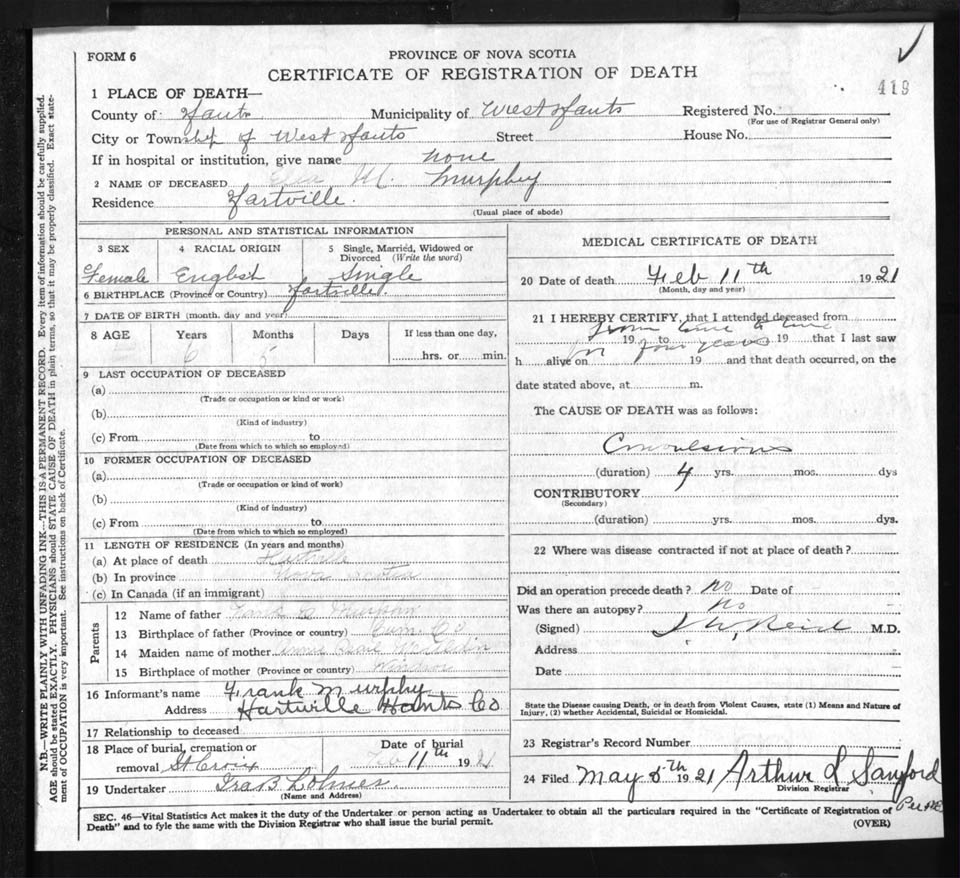 FORM 6
PROVINCE OF NOVA SCOTIA
CERTIFICATE OF REGISTRATION OF DEATH
419
1 PLACE OF DEATH—
County of Hants Municipality of West Hants Registered No.
(For use of Registrar General only)
City or Township of West Hants Street House No.
If in hospital or institution, give name none
2 NAME OF DECEASED M. Murphy
Residence Hartville.
(Usual place of abode)
PERSONAL AND STATISTICAL INFORMATION
3 SEX 4 RACIAL ORIGIN 5 Single, Married, Widowed or Divorced (Write the word)
Female English Single
6 BIRTHPLACE (Province or Country) Hartville.
7 DATE OF BIRTH (month, day and year)
8 AGE Years Months Days If less than one day,
6 5 hrs. or min.
9 LAST OCCUPATION OF DECEASED
(a)
(Trade or occupation or kind or work)
(b)
(Kind of industry)
(c) From to
(Date from which to which so employed)
10 FORMER OCCUPATION OF DECEASED
(a)
(Trade or occupation or kind of work)
(b)
(Kind of industry)
(c) From to
(Date from which to which so employed)
11 LENGTH OF RESIDENCE (In years and months)
(a) At place of death Hartville
(b) In province Nova Scotia
(c) In Canada (if an immigrant)
Parents
12 Name of father Murphy
13 Birthplace of father (Province or country) Cum Co
14 Maiden name of mother
15 Birthplace of mother (Province or country) Windsor
16 Informant's name Frank Murphy
Address Hartville Hants Co
17 Relationship to deceased
18 Place of burial, cremation or removal St Croix Date of burial Feb 11th 1921
19 Undertaker Ira B Lohnes
(Name and Address)
MEDICAL CERTIFICATE OF DEATH
20 Date of death Feb 11th 1921
(Month, day and year)
21 I HEREBY CERTIFY, that I attended deceased from
from time to time
19 to 19 that I last saw
for four years
h alive on 19 and that death occurred, on the
date stated above, at m.
The CAUSE OF DEATH was as follows:
Convulsions
(duration) 4 yrs. mos. dys
CONTRIBUTORY
(Secondary)
(duration) yrs. mos. dys.
22 Where was disease contracted if not at place of death?
Did an operation precede death? No Date of
Was there an autopsy? No
(Signed) J W. Reid M.D.
Address
Date
State the Disease causing Death, or in death from Violent Causes, state (1) Means and Nature of
Injury, (2) whether Accidental, Suicidal or Homicidal.
23 Registrar's Record Number
24 Filed May 5th 1921 Arthur L Sanford
Division Registrar
SEC. 46—Vital Statistics Act makes it the duty of the Undertaker or person acting as Undertaker to obtain all the particulars required in the "Certificate of Registration of
Death" and to fyle the same with the Division Registrar who shall issue the burial permit.
(OVER)
N.B.—WRITE PLAINLY WITH UNFADING INK—THIS IS A PERMANENT RECORD. Every item of information should be carefully supplied.
AGE should be stated EXACTLY. PHYSICIANS should STATE CAUSE OF DEATH in plain terms, so that it may be properly classified. Exact state-
ment of OCCUPATION is very important. See instructions on back of Certificate.